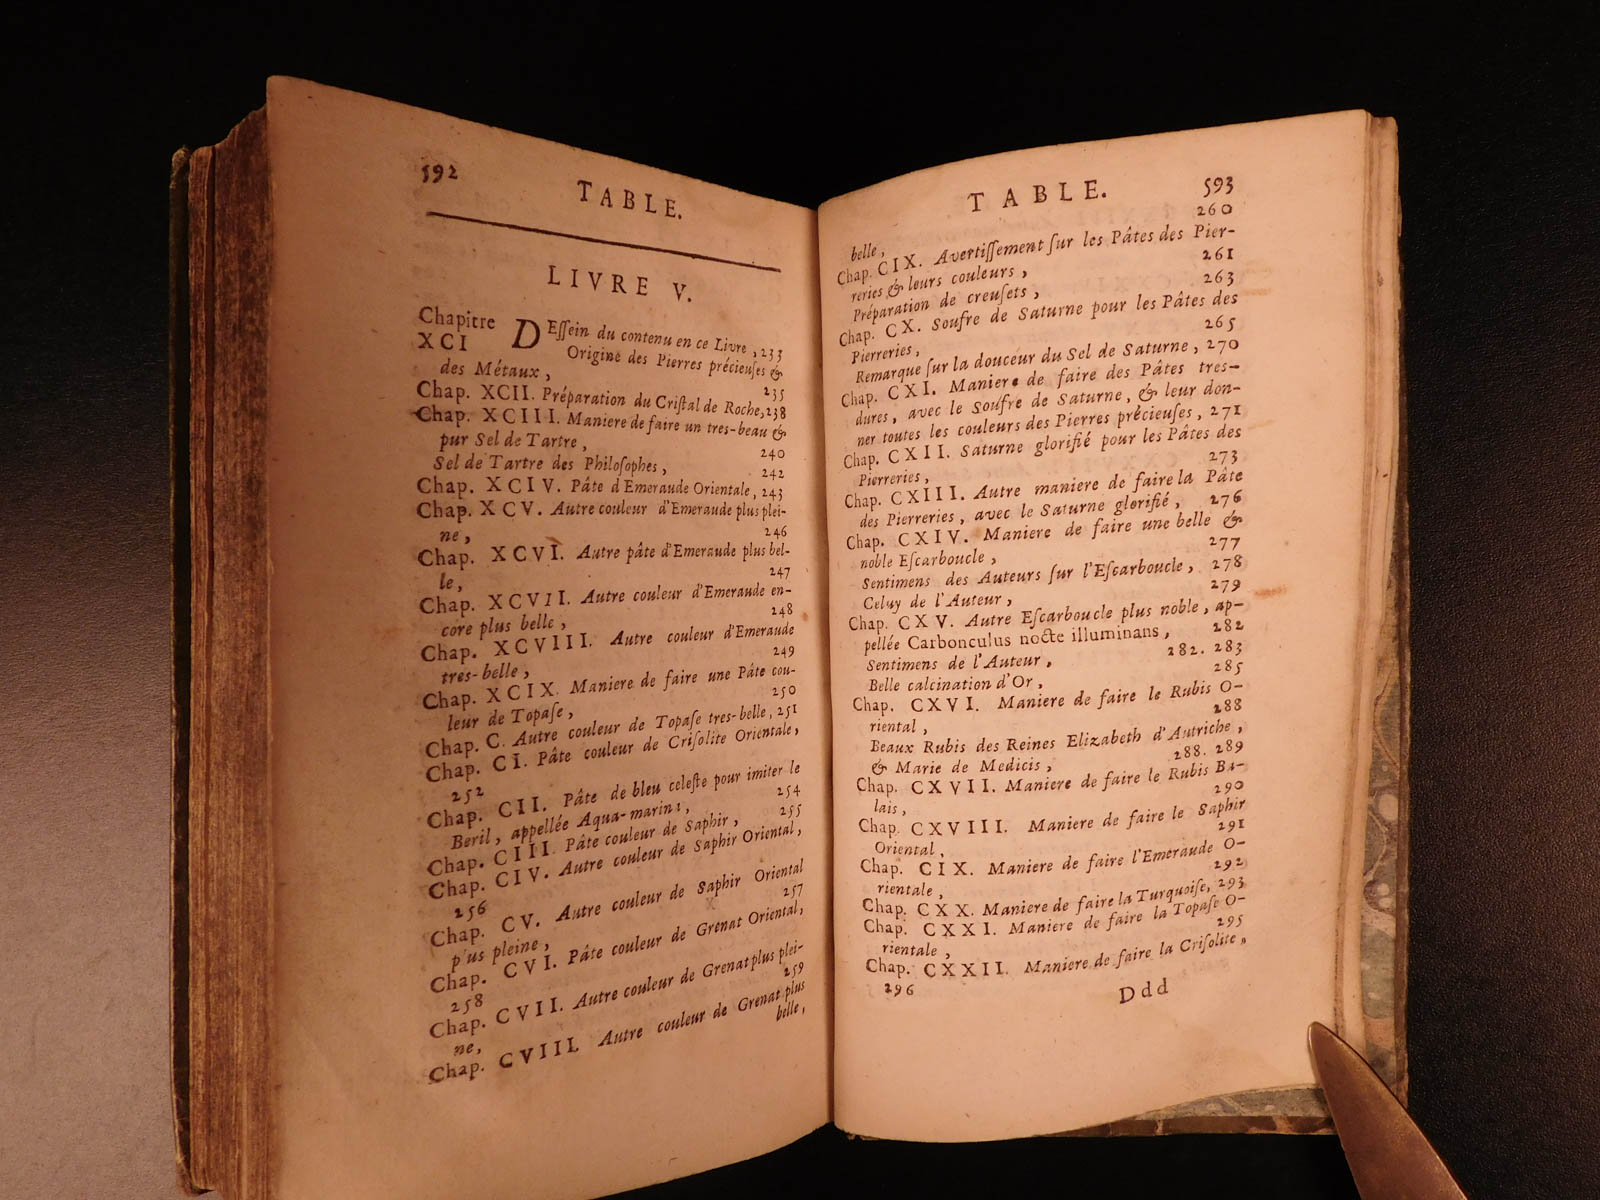 592
TABLE.
LIVRE V.
Chapitre DEſſein du contenu en ce Livre, 233
XCI Origine des Pierres précieuſes &
des Métaux, 235
Chap. XCII. Préparation du Criſtal de Roche, 238
Chap. XCIII. Maniere de faire un tres-beau &
pur Sel de Tartre, 240
Sel de Tartre des Philoſophes, 242
Chap. XCIV. Pâte d'Emeraude Orientale, 243
Chap. XCV. Autre couleur d'Emeraude plus plei-
ne, 246
Chap. XCVI. Autre pâte d'Emeraude plus bel-
le, 247
Chap. XCVII. Autre couleur d'Emeraude en-
core plus belle, 248
Chap. XCVIII. Autre couleur d'Emeraude
tres-belle, 249
Chap. XCIX. Maniere de faire une Pâte cou-
leur de Topaſe, 250
Chap. C. Autre couleur de Topaſe tres-belle, 251
Chap. CI. Pâte couleur de Criſolite Orientale,
252
Chap. CII. Pâte de bleu celeſte pour imiter le
Beril, appellée Aqua-marina, 254
Chap. CIII. Pâte couleur de Saphir, 255
Chap. CIV. Autre couleur de Saphir Oriental,
256
Chap. CV. Autre couleur de Saphir Oriental
plus pleine, 257
Chap. CVI. Pâte couleur de Grenat Oriental,
258
Chap. CVII. Autre couleur de Grenat plus plei-
ne, 259
Chap. CVIII. Autre couleur de Grenat plus
belle,
TABLE. 593
belle, 260
Chap. CIX. Avertiſſement ſur les Pâtes des Pier-
reries & leurs couleurs, 261
Préparation de creuſets, 263
Chap. CX. Soufre de Saturne pour les Pâtes des
Pierreries, 265
Remarque ſur la douceur du Sel de Saturne, 270
Chap. CXI. Maniere de faire des Pâtes tres-
dures, avec le Soufre de Saturne, & leur don-
ner toutes les couleurs des Pierres précieuſes, 271
Chap. CXII. Saturne glorifié pour les Pâtes des
Pierreries, 273
Chap. CXIII. Autre maniere de faire la Pâte
des Pierreries, avec le Saturne glorifié, 276
Chap. CXIV. Maniere de faire une belle &
noble Eſcarboucle, 277
Sentimens des Auteurs ſur l'Eſcarboucle, 278
Celuy de l'Auteur, 279
Chap. CXV. Autre Eſcarboucle plus noble, ap-
pellée Carbonculus nocte illuminans, 282
Sentimens de l'Auteur, 282. 283
Belle calcination d'Or, 285
Chap. CXVI. Maniere de faire le Rubis O-
riental, 288
Beaux Rubis des Reines Elizabeth d'Autriche,
& Marie de Medicis, 288. 289
Chap. CXVII. Maniere de faire le Rubis Ba-
lais, 290
Chap. CXVIII. Maniere de faire le Saphir
Oriental, 291
Chap. CIX. Maniere de faire l'Emeraude O-
rientale, 292
Chap. CXX. Maniere de faire la Turquoiſe, 293
Chap. CXXI. Maniere de faire la Topaſe O-
rientale, 295
Chap. CXXII. Maniere de faire la Criſolite,
296
Ddd